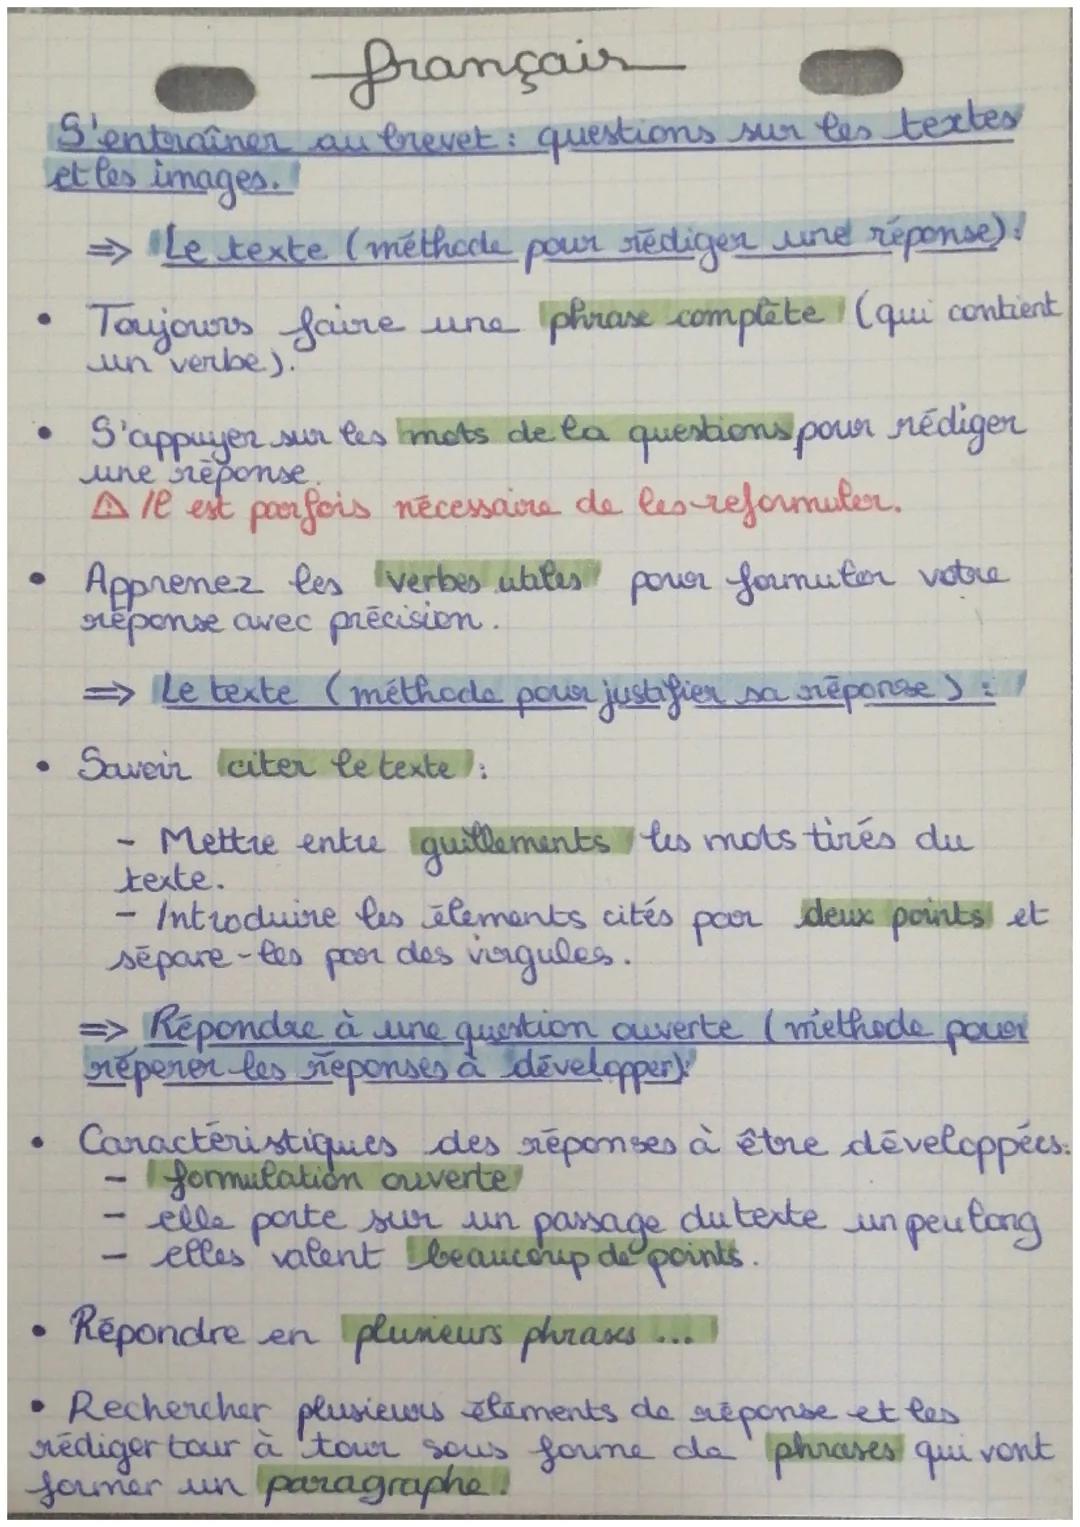 français
S'entraîner au brevet : questions sur les textes
et les images.
=> Le texte (méthode pour rédiger une réponse) :
• Toujours faire une phrase complète (qui contient
un verbe).
• S'appuyer sur les mots de la questions pour rédiger
une réponse.
⚠ Il est parfois nécessaire de les reformuler.
• Apprenez les verbes utiles pour formuler votre
réponse avec précision.
=> Le texte (méthode pour justifier sa réponse) :
• Savoir citer le texte :
- Mettre entre guillements les mots tirés du
texte.
- Introduire les élements cités par deux points et
sépare-les par des virgules.
=> Répondre à une question ouverte (méthode pour
réperer les réponses à développer) :
• Caractéristiques des réponses à être développées :
- formulation ouverte
- elle porte sur un passage du texte un peu long
- elles valent beaucoup de points.
• Répondre en plusieurs phrases ...
• Rechercher plusieurs éléments de réponse et les
rédiger tour à tour sous forme de phrases qui vont
former un paragraphe.